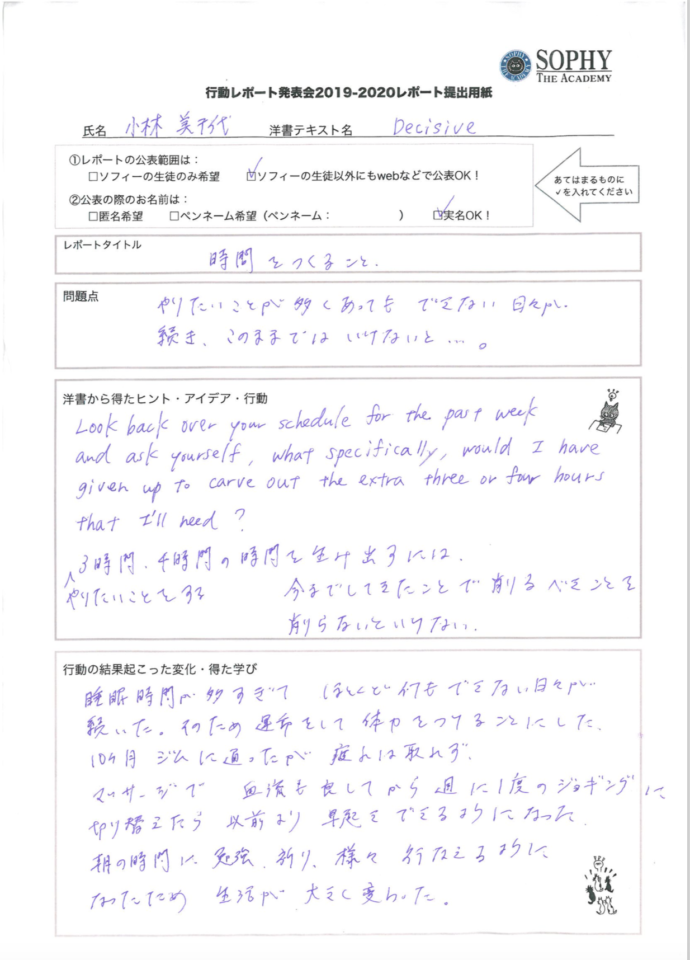 SOPHY
THE ACADEMY
行動レポート発表会2019-2020レポート提出用紙
氏名 小林 美千代 洋書テキスト名 Decisive
①レポートの公表範囲は：
□ソフィーの生徒のみ希望 ☑ソフィーの生徒以外にもwebなどで公表OK！
②公表の際のお名前は：
□匿名希望 □ペンネーム希望（ペンネーム： ） ☑実名OK！
あてはまるものに
✓を入れてください
レポートタイトル
時間をつくること.
問題点
やりたいことが多くあっても できない 日々が
続き、このままでは いけないと…。
洋書から得たヒント・アイデア・行動
Look back over your schedule for the past week
and ask yourself, what specifically, would I have
given up to carve out the extra three or four hours
that I'll need?
3時間、4時間の時間を生み出すには、
やりたいことをする 今までしてきたことで削るべきことを
削らないといけない.
行動の結果起こった変化・得た学び
睡眠時間が多すぎて ほとんど何もできない日々が
続いた。そのため運動をして体力をつけることにした.
10ヶ月 ジムに通ったが 疲れは取れず、
マッサージで 血液を良くしてから 週に1度のジョギングに
切り替えたら 以前より 早起きできるようになった.
朝の時間に 勉強、祈り、様々 行なえるように
なったため 生活が 大きく変わった。